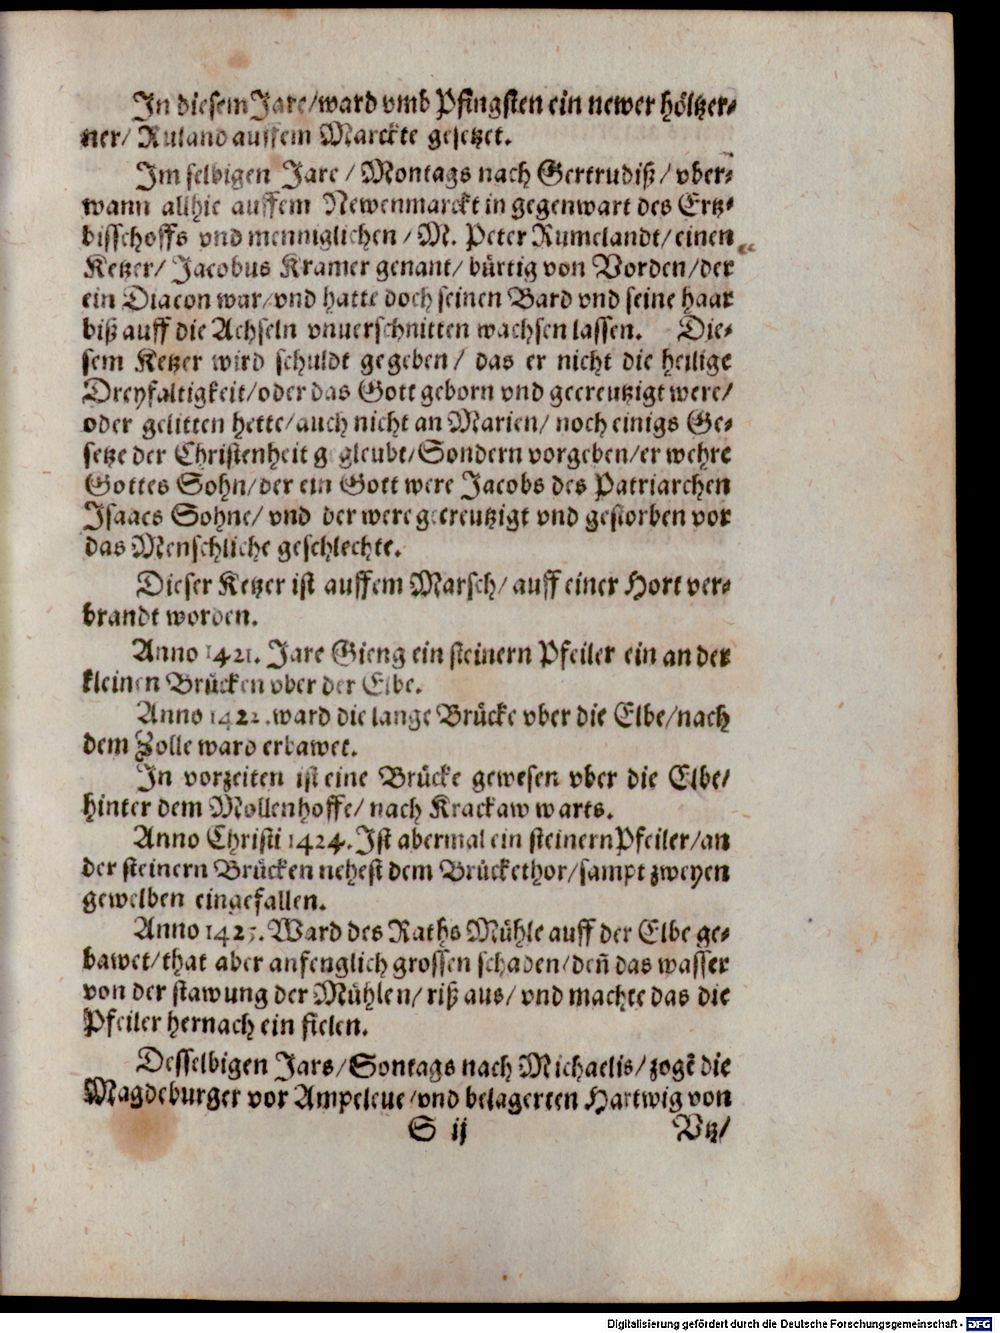 In diesem Jare/ward vmb Pfingsten ein newer höltzer-
ner/ Ruland auffem Marckte gesetzet.
Im selbigen Jare / Montags nach Gertrudiß / vber-
wann allhie auffem Newenmarckt in gegenwart des Ertz-
bisschoffs vnd menniglichen / M. Peter Rumelandt/ einen
Ketzer/ Jacobus Kramer genant/ bürtig von Vorden/der
ein Diacon war/vnd hatte doch seinen Bard vnd seine haar
biß auff die Achseln vnuerschnitten wachsen lassen. Die-
sem Ketzer wird schuldt gegeben / das er nicht die heilige
Dreyfaltigkeit/oder das Gott geborn vnd gecreutzigt were/
oder gelitten hette/auch nicht an Marien/ noch einigs Ge-
setze der Christenheit g gleubt/Sondern vorgeben/er wehre
Gottes Sohn/der ein Gott were Jacobs des Patriarchen
Isaacs Sohne/ vnd der were gecreutzigt vnd gestorben vor
das Menschliche geschlechte.
Dieser Ketzer ist auffem Marsch/ auff einer Hort ver-
brandt worden.
Anno 1421. Jare Gieng ein steinern Pfeiler ein an der
kleinen Brücken vber der Elbe.
Anno 1422.ward die lange Brücke vber die Elbe/nach
dem Zolle ward erbawet.
In vorzeiten ist eine Brücke gewesen vber die Elbe/
hinter dem Mollenhoffe/ nach Krackaw warts.
Anno Christi 1424. Ist abermal ein steinern Pfeiler/an
der steinern Brücken nehest dem Brückethor/sampt zweyen
gewelben eingefallen.
Anno 1425. Ward des Raths Mühle auff der Elbe ge-
bawet/that aber anfenglich grossen schaden/deñ das wasser
von der stawung der Mühlen/ riß aus/ vnd machte das die
Pfeiler hernach ein fielen.
Desselbigen Jars/Sontags nach Michaelis/zogẽ die
Magdeburger vor Ampeleue/vnd belagerten Hartwig von
S ij Vtz/
Digitalisierung gefördert durch die Deutsche Forschungsgemeinschaft - DFG